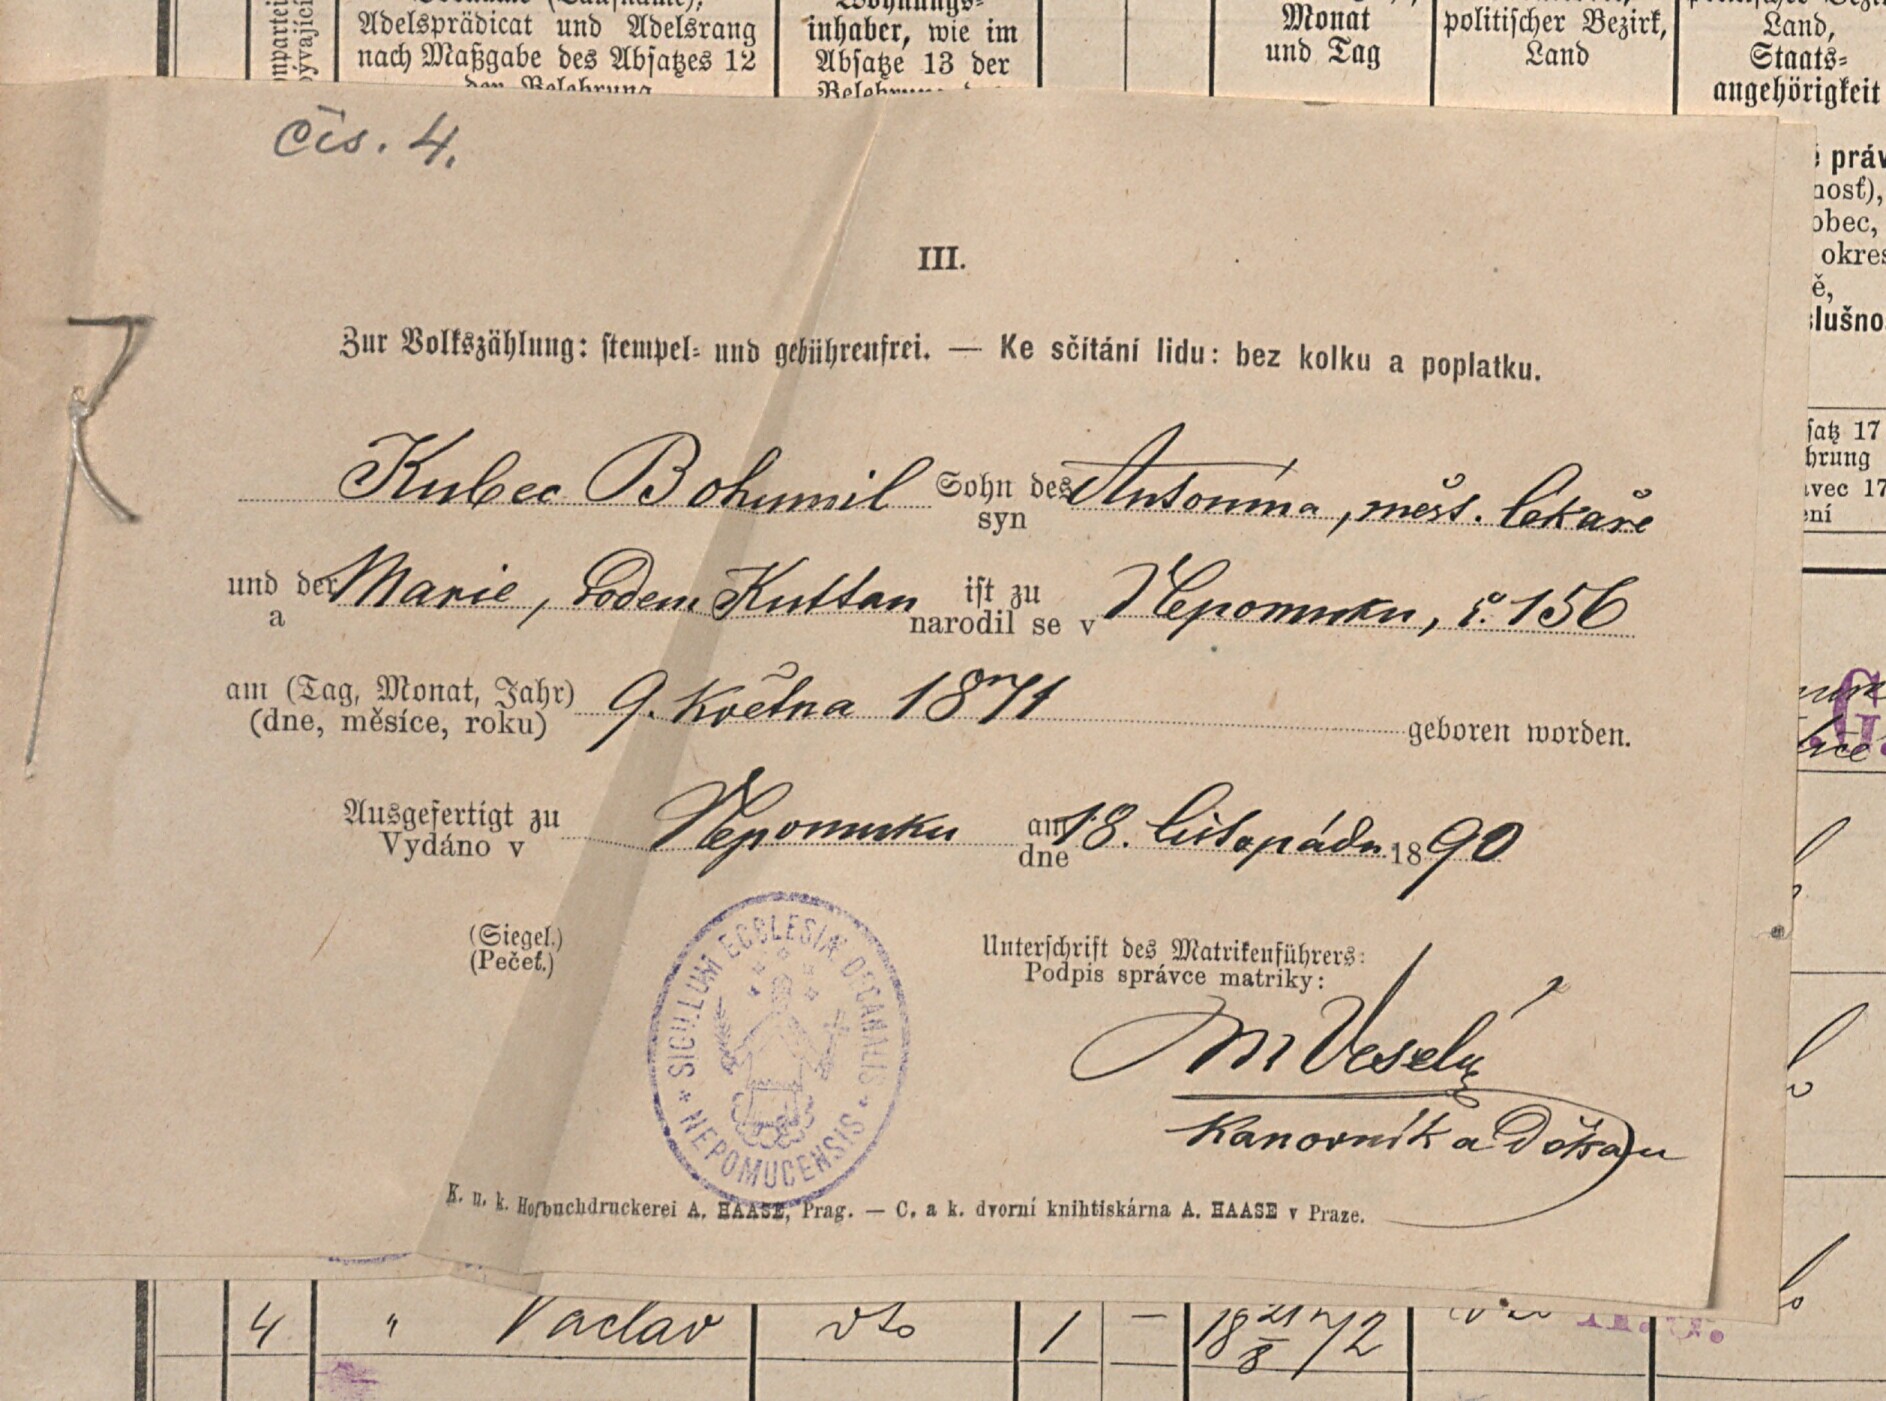 Adelsprädicat und Adelsrang
nach Maßgabe des Absatzes 12
der Belehrung
Wohnungs-
inhaber, wie im
Absatze 13 der
Monat
und Tag
politischer Bezirk,
Land
Land,
Staats-
angehörigkeit
čís. 4.
III.
Zur Volkszählung: stempel- und gebührenfrei. — Ke sčítání lidu: bez kolku a poplatku.
Kubec Bohumil Sohn des Antonína, měst. lékaře
syn
und der Marie, rodem Kuttan ist zu Nepomuku, č. 156
a narodil se v
am (Tag, Monat, Jahr) 9. Května 1871
(dne, měsíce, roku) geboren worden.
Ausgefertigt zu Nepomuku am 18. listopádu 1890
Vydáno v dne
(Siegel.)
(Pečeť.)
SIGILLUM ECCLESIÆ DECANALIS
NEPOMUCENSIS
Unterschrift des Matrikenführers:
Podpis správce matriky:
Veselý
Kanovník a Děkan
K. u. k. Hofbuchdruckerei A. HAASE, Prag. — C. a k. dvorní knihtiskárna A. HAASE v Praze.
obec,
okres
4 " Václav dto 1 — 18 21/8 72